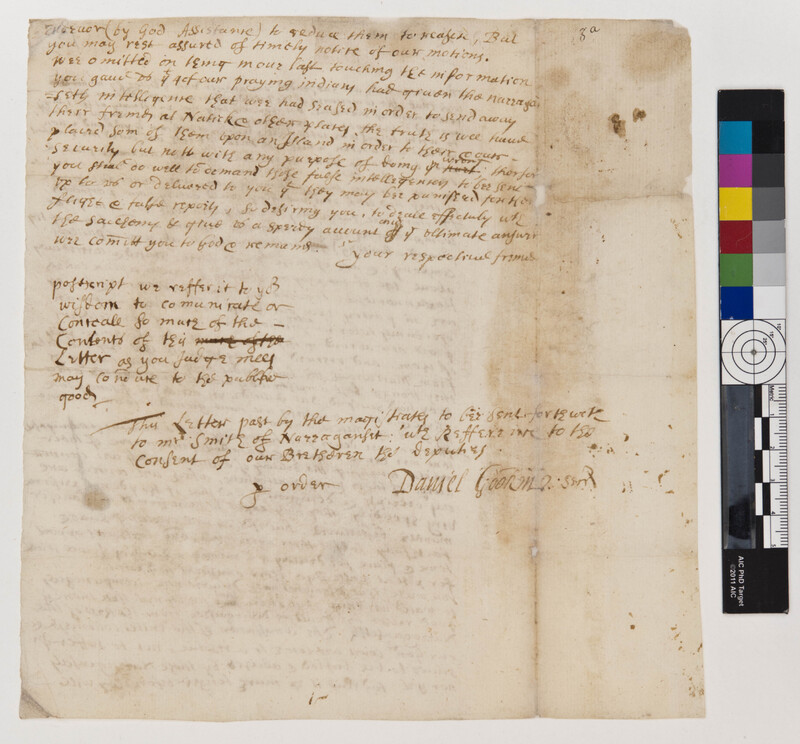 (by God Assistance) to reduce them to reason, But
you may rest assured of timely notice of our motions.
wee omitted on thing in our last touching the information
you gaue vs yt of our praying indians had giuen the Narragan
setts intelligence that wee had seased in order to send away
their freinds at Natick & other places. the truth is wee haue
placed som of them vpon an Island in order to their & our
security but not with any purpose of doing ym wrong, therfor
you shall do well to demand those false intelligencers to bee
to vs or deliuered to you yt they may bee punished for their
& false reports, so desiring you, to deale effectualy wth
the Sachems & giue vs a speedy account and of ye vltimate answer
wee comitt you to God & remaine. your respectiue freinds
3a
postscript we reffer it to yor
wisdom to comunicate or
Conceale so much of the
Contents of this much of the
Letter as you judge meet
may conduce to the publique
good
This Letter past by the magistrates to bee sent forthwth
to mr Smith of Narragansit: wth Refference to the
Consent of our Bretheren the deputies.
p order Daniel Gookin